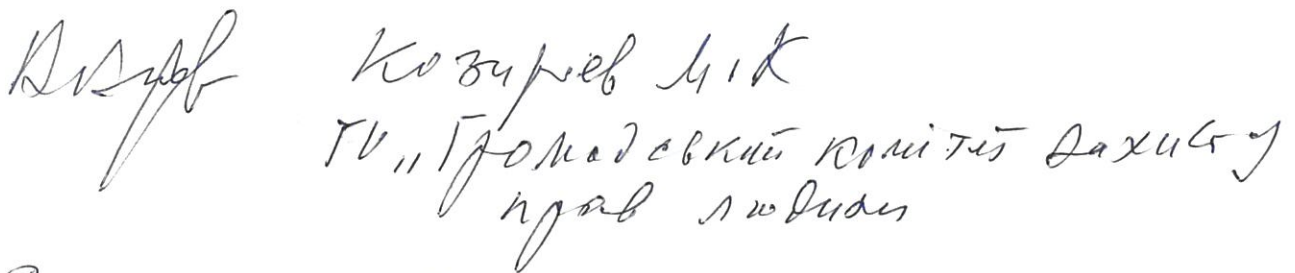 Козирєв М.К
ГО „Громадський комітет захисту
прав людини